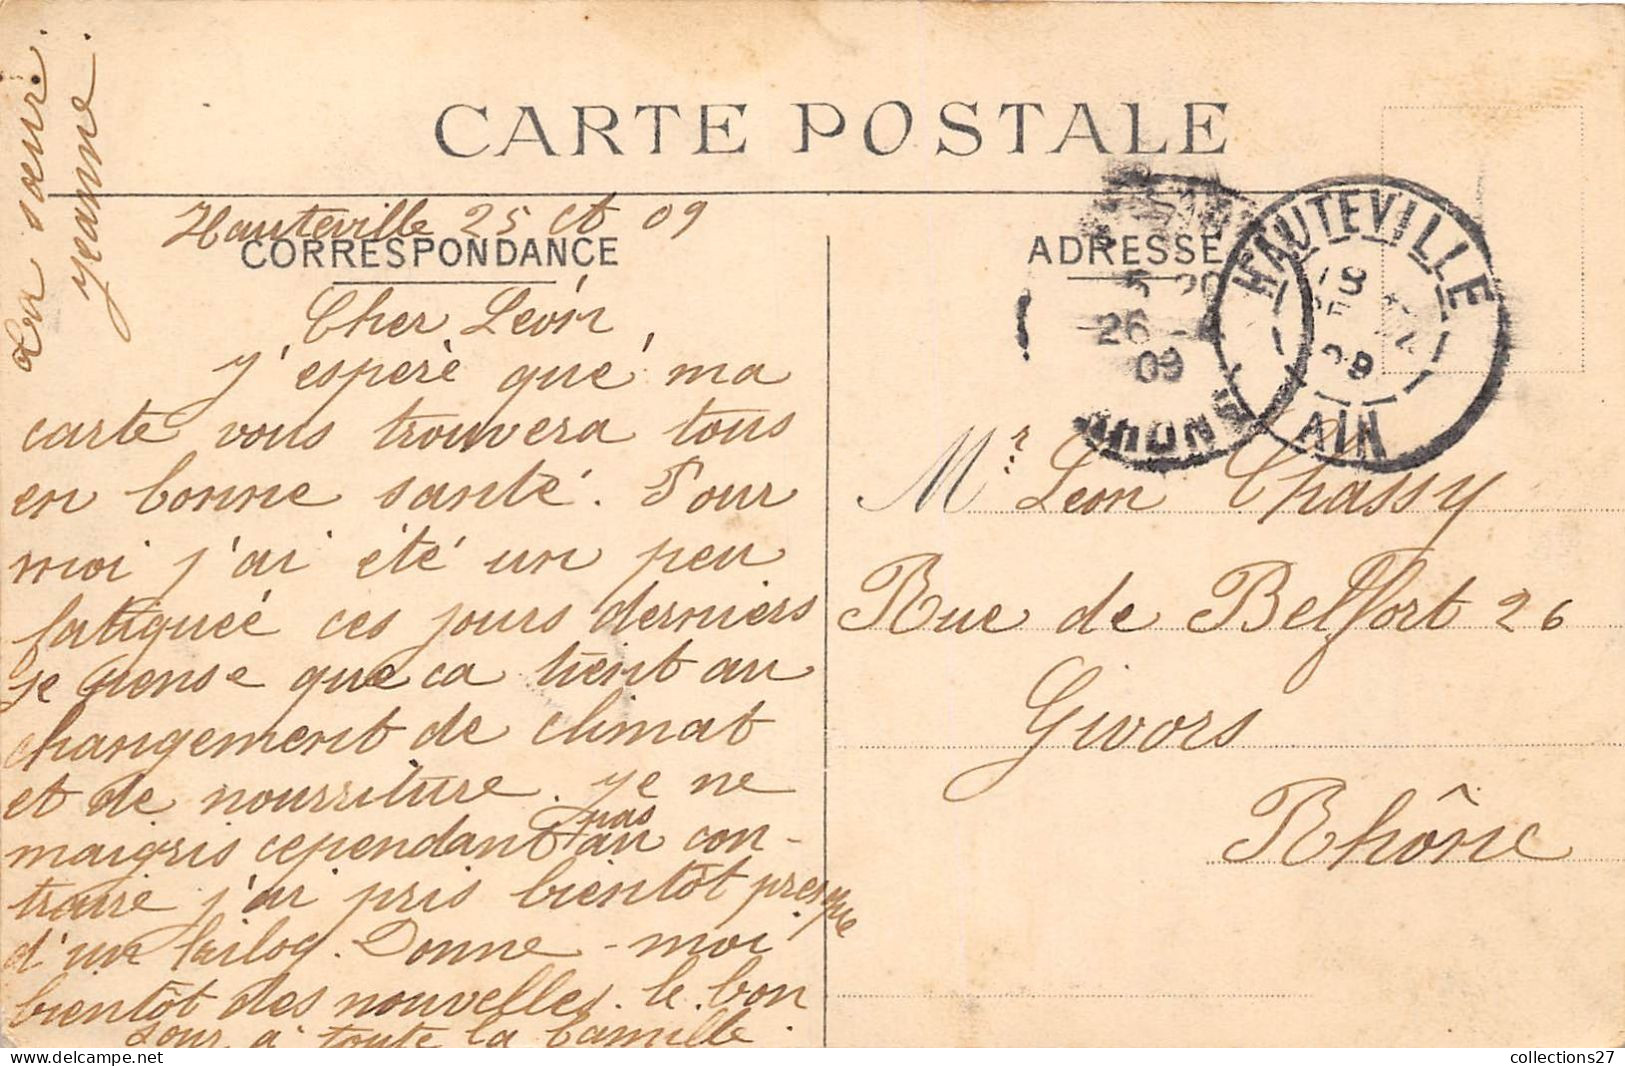 CARTE POSTALE
Hauteville 25 ct 09
CORRESPONDANCE
Cher Léon,
J'espère que ma
carte vous trouvera tous
en bonne santé. Pour
moi j'ai été un peu
fatiguéé ces jours derniers
je pense que ca tient au
changement de climat
et de nourriture. je ne
maigris cependant pas au con-
traire j'ai pris bientôt presque
d'un kilog. Donne-moi
bientôt des nouvelles. le bon
jour à toute la famille.
La sœur.
Jeanne.
ADRESSE
5 20
26
09
RHONE
HAUTEVILLE
AIN
Mr Léon Chassy
Rue de Belfort 26
Givors
Rhône
collections27